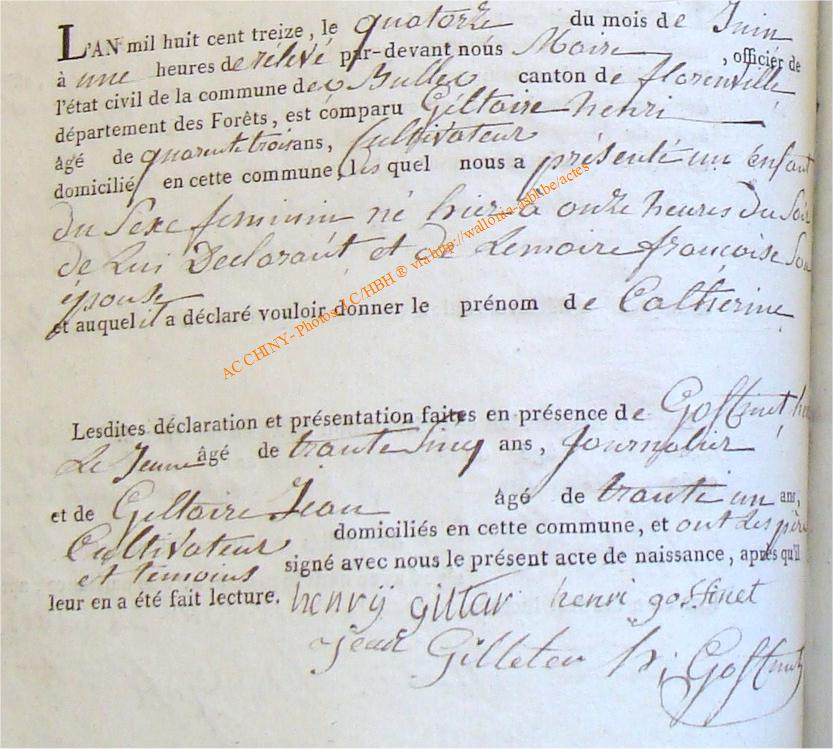 L'AN mil huit cent treize, le quatorze du mois de Juin
à une heures de rélévé par-devant nous Maire, officier de
l'état civil de la commune de Bulles canton de florenville
département des Forêts, est comparu Giltaire henri
âgé de quarente trois ans, Cultivateur
domicilié en cette commune, lequel nous a présenté un enfant
du Sexe feminin né hier à onze heures du Soir
de Lui Declarant et de Lemoire françoise Son
épouse
et auquel il a déclaré vouloir donner le prénom de Catherine
AC CHINY - Photos LC/HBH ® via http://wallonia-asbl.be/actes
Lesdites déclaration et présentation faites en présence de Goffinet
Le Jeune âgé de trante Sinq ans, Journalier
et de Giltaire Jean âgé de trante un ans,
Cultivateur domiciliés en cette commune, et ont Les père
et temoins signé avec nous le présent acte de naissance, après qu'il
leur en a été fait lecture. henrÿ giltar henri goffinet
Jean Gilleter h; Goffinet